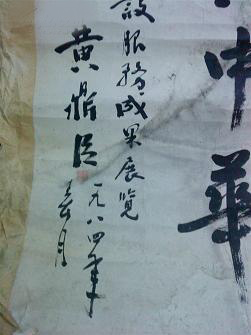 中華
設服務成果展覽
一九八四年
黄鼎臣
春月